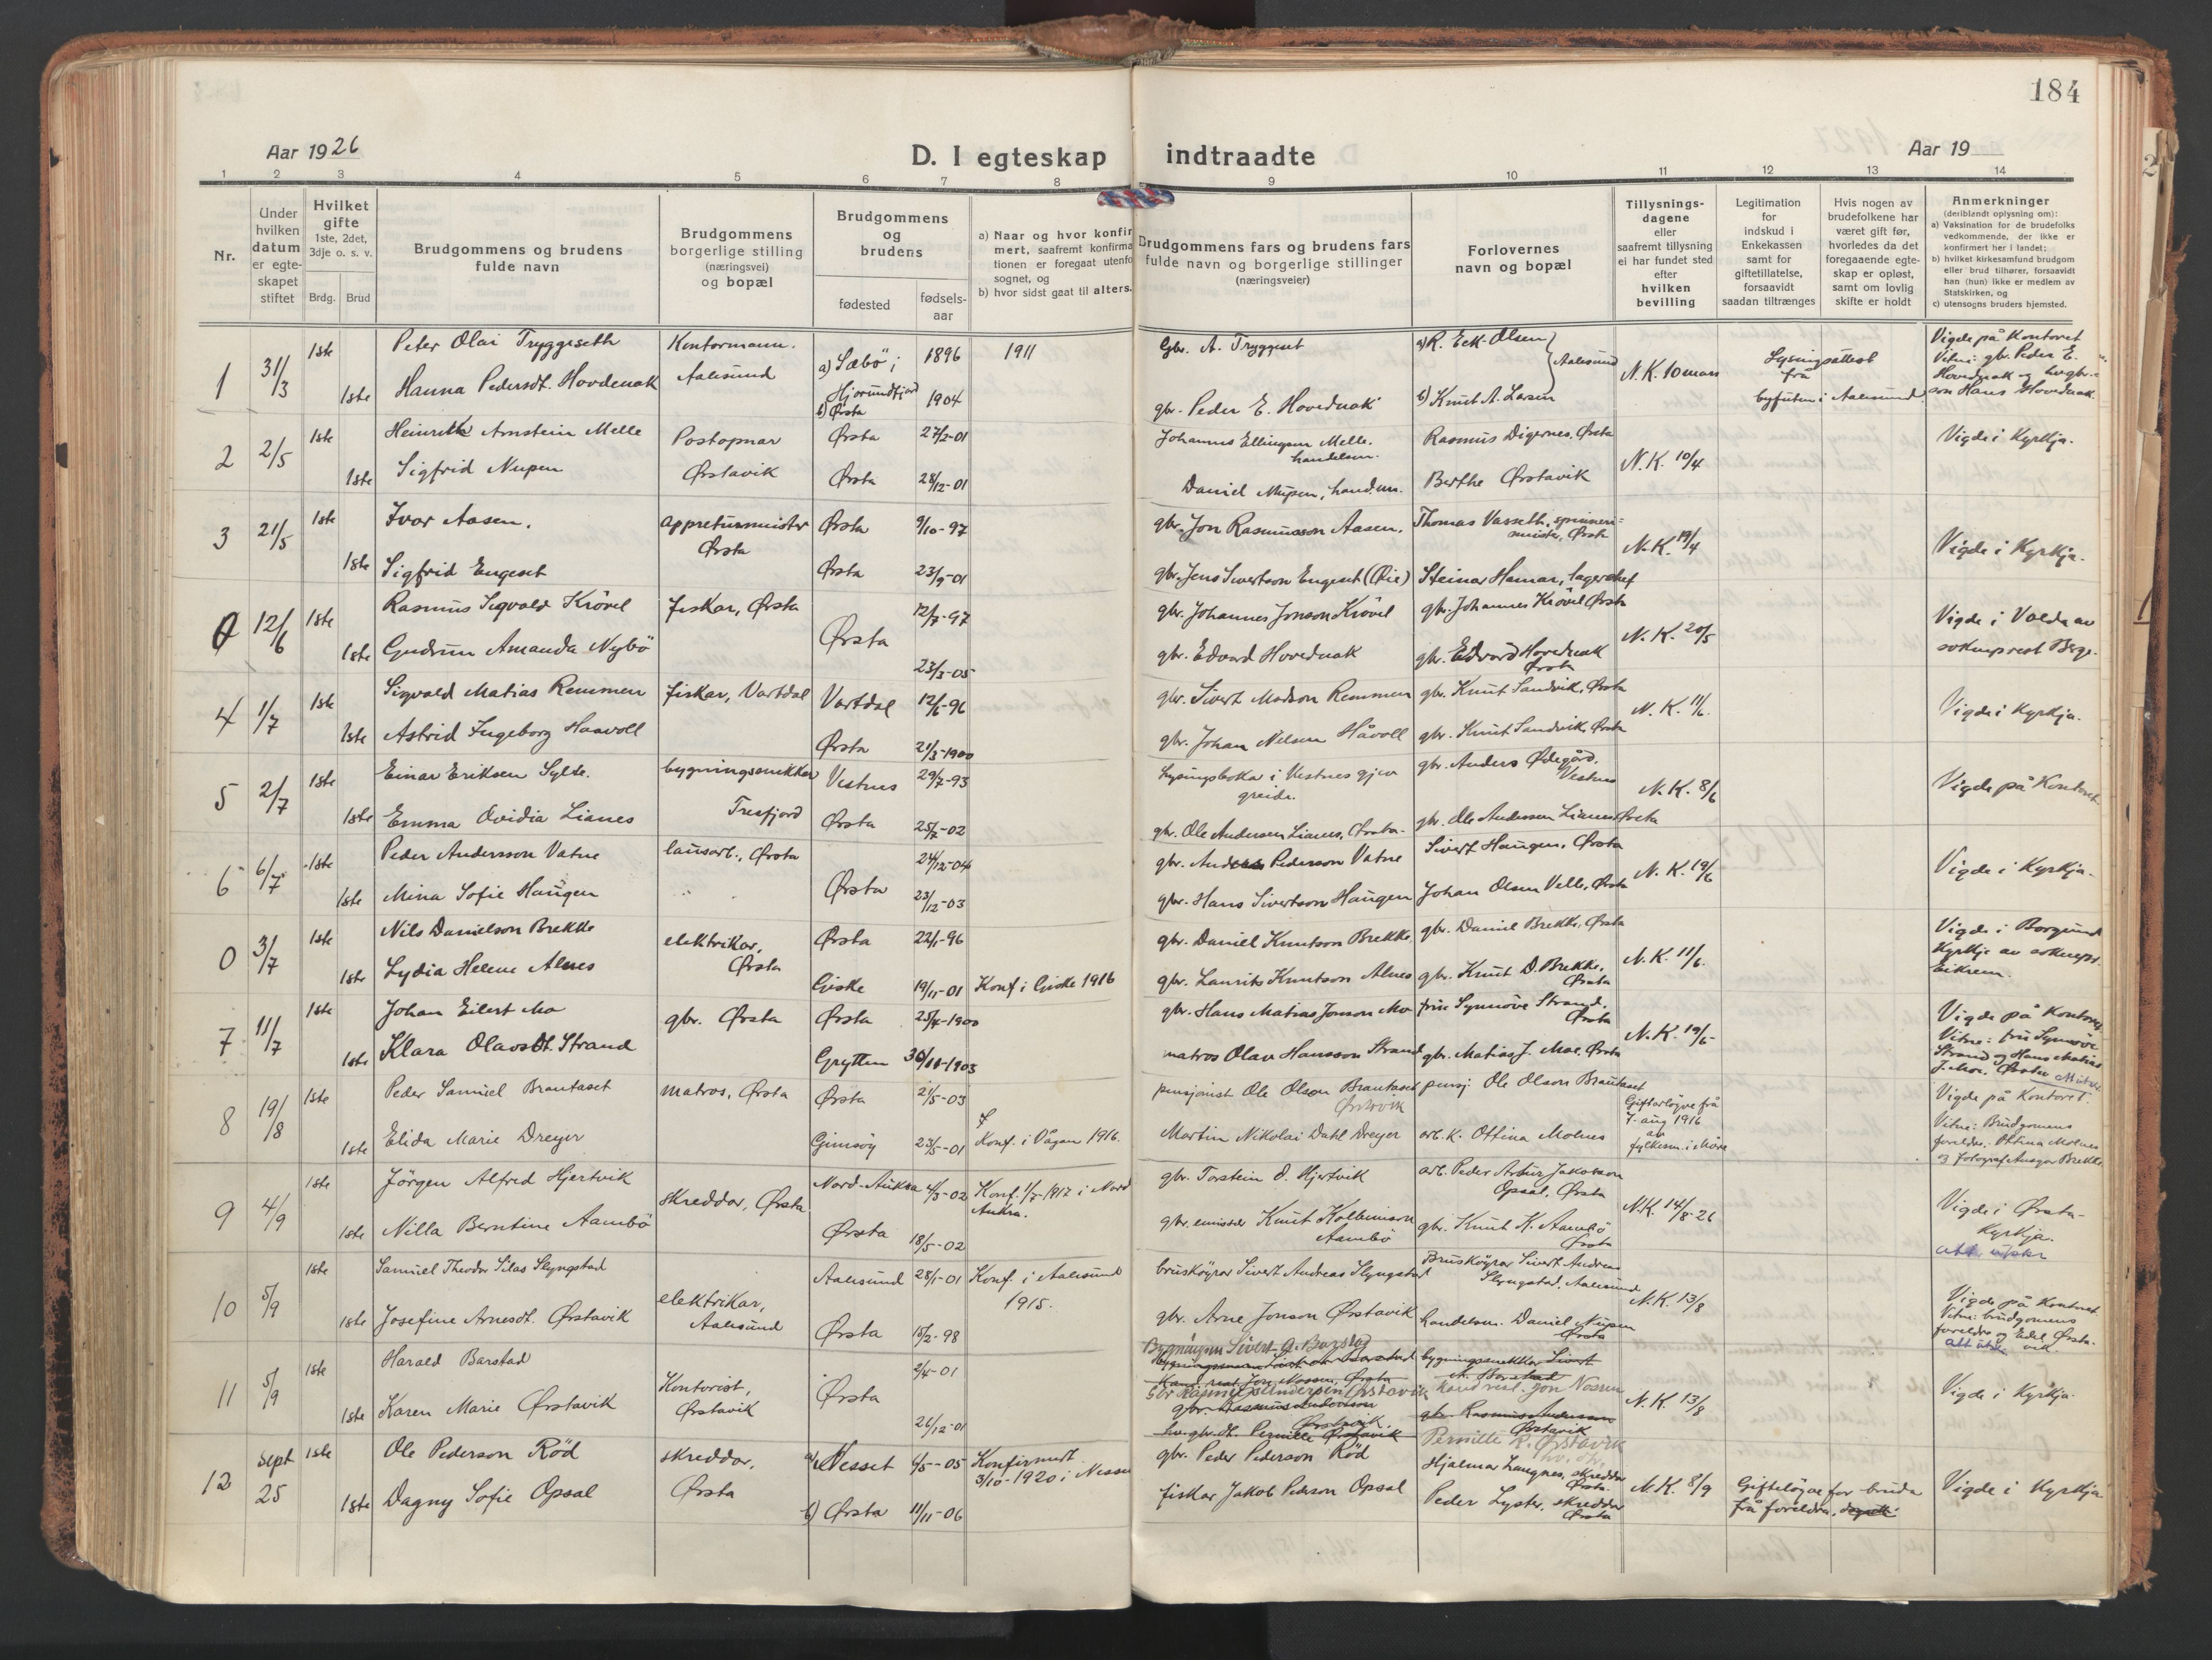 184
Aar 1926
D. I egteskap indtraadte
Aar 19
1 2 3 4 5 6 7 8 9 10 11 12 13 14
Nr.
Under hvilken datum er egteskapet stiftet
Hvilket gifte 1ste, 2det, 3dje o. s. v.
Brdg. Brud
Brudgommens og brudens fulde navn
Brudgommens borgerlige stilling (næringsvei) og bopæl
Brudgommens og brudens
fødested
fødsels-aar
a) Naar og hvor konfir
mert, saafremt konfirma
tionen er foregaat utenfo
sognet, og
b) hvor sidst gaat til alters.
Brudgommens fars og brudens fars
fulde navn og borgerlige stillinger
(næringsveier)
Forlovernes
navn og bopæl
Tillysnings-
dagene
eller
saafremt tillysning
ei har fundet sted
efter
hvilken
bevilling
Legitimation
for
indskud i
Enkekassen
samt for
giftetillatelse,
forsaavidt
saadan tiltrænges
Hvis nogen av
brudefolkene har
været gift før,
hvorledes da det
foregaaende egte-
skap er opløst,
samt om lovlig
skifte er holdt
Anmerkninger
(deriblandt oplysning om):
a) Vaksination for de brudefolks
vedkommende, der ikke er
konfirmert her i landet;
b) hvilket kirkesamfund brudgom
eller brud tilhører, forsaavidt
han (hun) ikke er medlem av
Statskirken, og
c) utensogns bruders hjemsted.
1 31/3 1ste Peter Olai Tryggeseth Kontormann. a) Sæbö i 1896 1911 Gbr. A. Tryggset a) R. Eek-Olsen Aalesund N.K. 10 mars Lysingsattest frå byfuten i Aalesund Vigde på Kontoret
1ste Hanna Pedersdt. Hovdenak Aalesund Hjørundfjord b) Ørsta 1904 gbr. Peder E. Hovdenak b) Knut A. Lasen Vitne: gbr. Peder E. Hovdenak og son Hans Hovdenak
2 2/5 1ste Heinrik Arnstein Melle Postopnar Ørsta 27/2-01 Johannes Ellingsen Melle. handelsm. Rasmus Digernes, Ørsta N.K. 10/4 Vigde i Kyrkja.
1ste Sigfrid Nupen Ørstavik Ørsta 28/12-01 Daniel Nupen, handm. Berthe Ørstavik
3 21/5 1ste Ivar Aasen. appreturmeister Ørsta Ørsta 9/10-97 gbr. Jon Rasmusson Aasen. Thomas Vasseth, spinneri=meister, Ørsta N.K. 19/4 Vigde i Kyrkja.
1ste Sigfrid Engeset Ørsta 23/9-01 gbr. Jens Sivertson Engeset (Øie) Steinar Hamar, lagerchef
0 12/6 1ste Rasmus Sigvald Krövel fiskar, Ørsta Ørsta 12/7-97 gbr. Johannes Jonson Krövel gbr. Johannes Krövel Ørsta N.K. 20/5 Vigde i Volda av sokneprest Berge.
1ste Gudrun Amanda Nybö 23/3-05 gbr. Edvard Hovdenak gbr. Edvard Hovdenak Ørsta
4 1/7 1ste Sigvald Matias Remmen fiskar, Vartdal Vartdal 12/6-96 gbr. Sivert Madson Remmen gbr. Knut Sandvik, Ørsta N.K. 11/6. Vigde i Kyrkja.
1ste Astrid Ingeborg Haavoll Ørsta 21/3-1900 gbr. Johan Nilsen Håvoll gbr. Knut Sandvik, Ørsta
5 2/7 1ste Einar Eriksen Sylte. bygningssnikkar Tresfjord Vestnes 29/7-93 Lysingsboka i Vestnes gjev greide. gbr. Anders Ødegård, Vestnes N.K. 8/6 Vigde på Kontoret
1ste Emma Ovidia Lianes Ørsta 25/7-02 gbr. Ole Andersen Lianes, Ørsta. gbr. Ole Andersen Lianes, Ørsta
6 6/7 1ste Peder Andersson Vatne lausarb., Ørsta Ørsta 24/12-04 gbr. Anders Pederson Vatne Sivert Haugen, Ørsta N.K. 19/6 Vigde i Kyrkja.
1ste Mina Sofie Haugen 23/12-03 gbr. Hans Sivertson Haugen Johan Olsen Velle, Ørsta
0 3/7 1ste Nils Danielson Brekke elektrikar, Ørsta Ørsta 22/1-96 gbr. Daniel Knutson Brekke gbr. Daniel Brekke, Ørsta N.K. 11/6. Vigde i Borgund Kyrkje av soknepr. Eikrem.
1ste Lydia Helene Alnes Giske 19/11-01 Konf. i Giske 1916 gbr. Laurits Knutson Alnes gbr. Knut D. Brekke. Ørsta
7 11/7 1ste Johan Eilert Mo gbr. Ørsta Ørsta 25/4-1900 gbr. Hans Matias Jonson Mo fru Synnöve Strand. Ørsta N.K. 19/6 Vigde på Kontoret
1ste Klara Olavsdt. Strand Grytten 30/11-1903 matros Olav Hansson Strand gbr. Matias J. Moe. Ørsta Vitne: fru Synnöve Strand og Hans Matias J. Moe. Ørsta
8 19/8 1ste Peder Samuel Brautaset matros, Ørsta Ørsta 21/5-03 pensjonist Ole Olson Brautaset Ørstavik pensj. Ole Olson Brautaset Gifterløyve frå 7. aug 1916 av fylkesm. i Möre Vigde på Kontoret.
1ste Elida Marie Dreyer Gimsöy 23/5-01 Konf. i Vågan 1916. Martin Nikolai Dahl Dreyer arb.k. Ottina Molnes Vitne: Brudgomens foreldre, Ottina Molnes og fotograf Ansgar Brekke
9 4/9 1ste Jörgen Alfred Hjertvik skreddar, Ørsta Nord-Aukra 4/3-02 Konf. 1/7-1917 i Nord Aukra. gbr. Torstein O. Hjertvik arb. Peder Artur Jakobson Opsal, Ørsta N.K. 14/8-26 Vigde i Ørsta-Kyrkja.
1ste Nilla Berntine Aambö Ørsta 18/5-02 gbr. emissær Knut Kolbeinson Aambö gbr. Knut K. Aambö Ørsta
10 5/9 1ste Samuel Theodor Silas Slyngstad elektrikar, Aalesund Aalesund 28/1-01 Konf. i Aalesund 1915. brusköyrar Sivert Andreas Slyngstad Brusköyrar Sivert Andreas Slyngstad, Aalesund N.K. 13/8 Vigde på Kontoret
1ste Josefine Arnesdt. Ørstavik Ørsta 15/2-98 gbr. Arne Jonson Ørstavik handelsm. Daniel Nupen Ørsta Vitne: brudgomens foreldre og Edel Ørstavik.
11 5/9 1ste Harald Barstad Kontorist, Ørstavik Ørsta 2/4-01 Sivert A. Barstad bygningssnikkar Sivert A. Barstad N.K. 13/8 Vigde i Kyrkja
1ste Karen Marie Ørstavik 26/12-01 Kand. real. Jon Nossen, Ørsta Gbr Rasmus Anderson Ørstavik Kand real. Jon Nossen
gbr. Rasmus Anderson Ørstavik. gbr. Rasmus Anderson Ørstavik
gbr. dt. Pernille Ørstavik Pernille R. Ørstavik
12 Sept 25 1ste Ole Pederson Röd skreddar, Ørsta a) Nesset 4/5-05 Konfirmert 3/10-1920 i Nesse gbr. Peder Pederson Röd Hjalmar Langnes, skreddar Ørsta. N.K. 8/9 Gifteløyve for bruda frå foreldra. Vigde i Kyrkja
1ste Dagny Sofie Opsal b) Ørsta 11/11-06 fiskar Jakob Pederson Opsal Peder Lyster, skreddar Ørsta